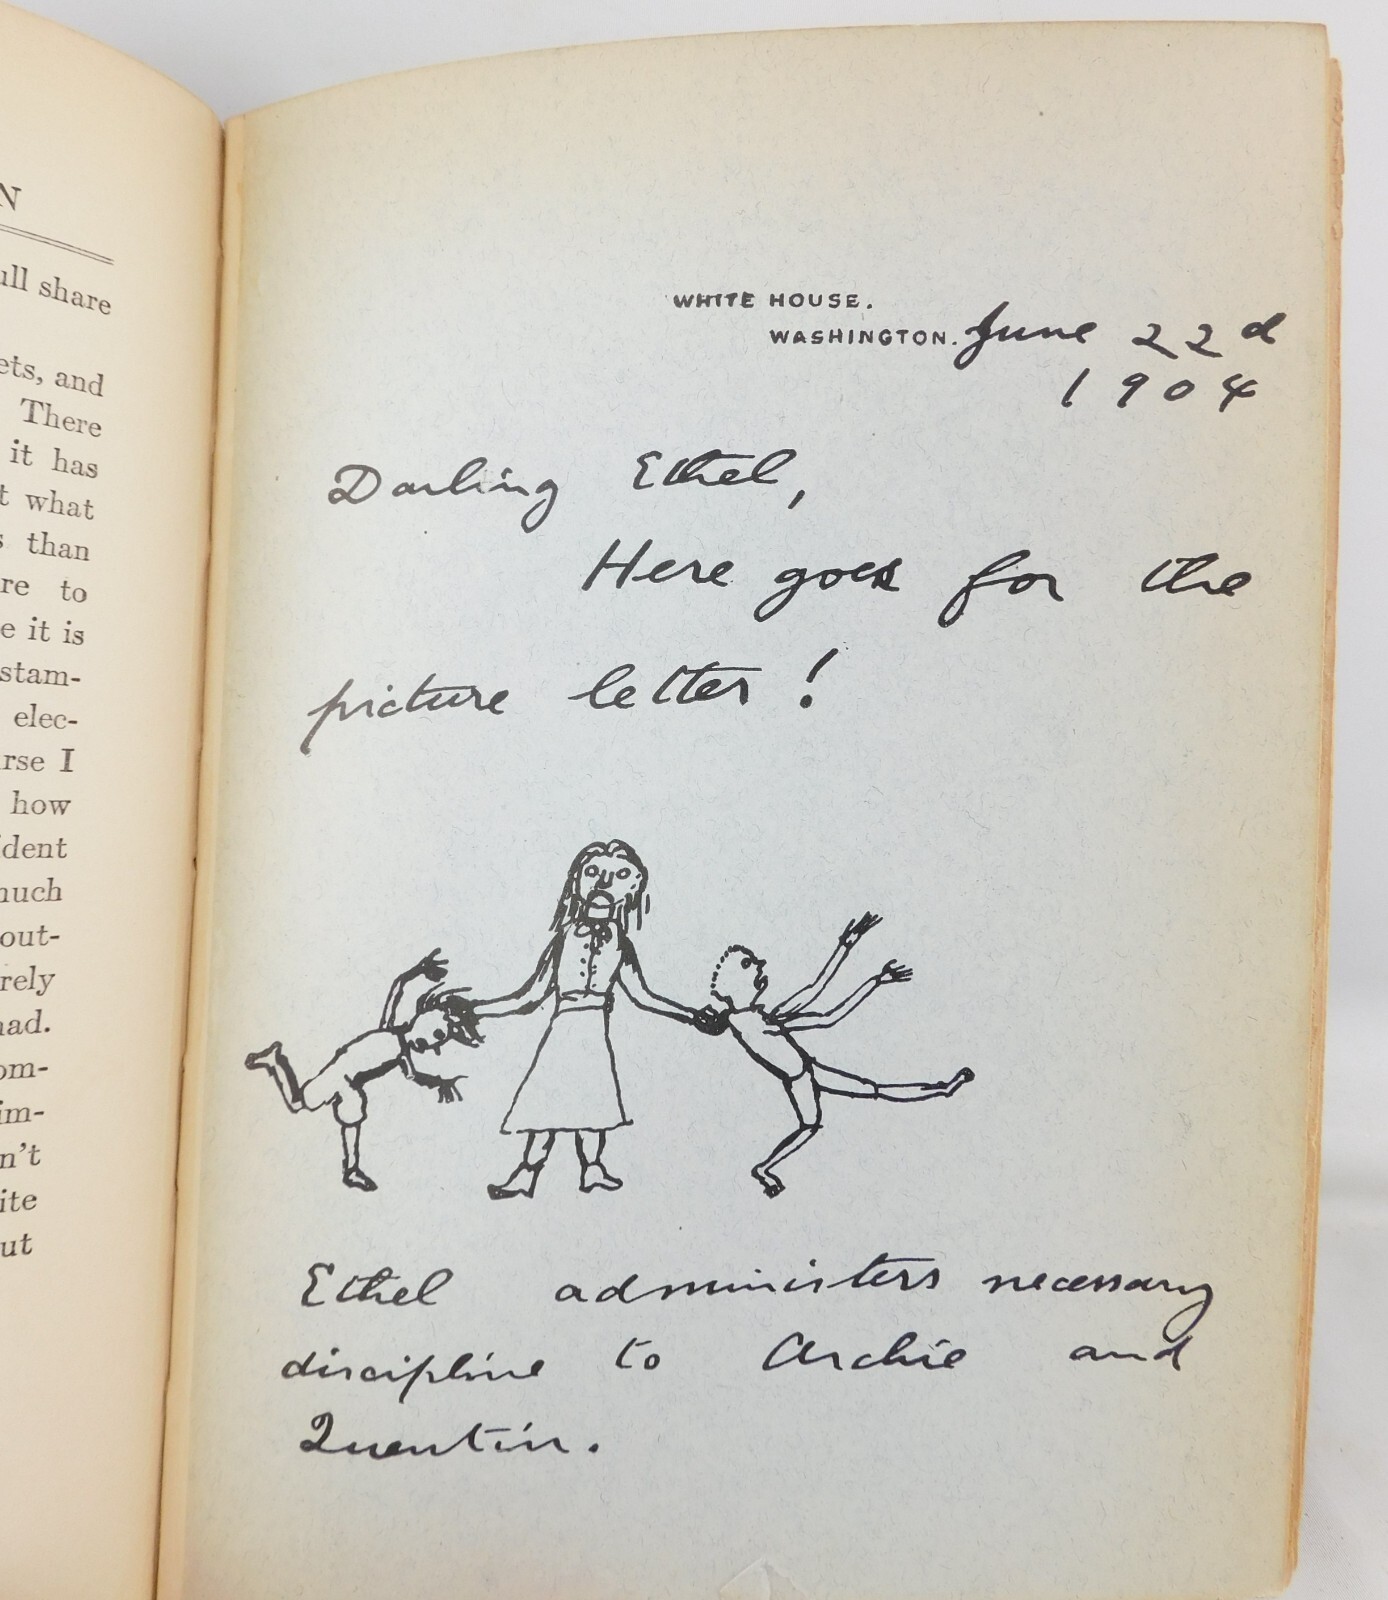 N
ull share
ets, and
There
it has
t what
s than
re to
e it is
stam-
elec-
rse I
how
dent
much
out-
rely
nad.
om-
im-
n't
ite
ut
WHITE HOUSE.
WASHINGTON. June 22d
1904
Darling Ethel,
Here goes for the
picture letter!
Ethel administers necessary
discipline to Archie and
Quentin.